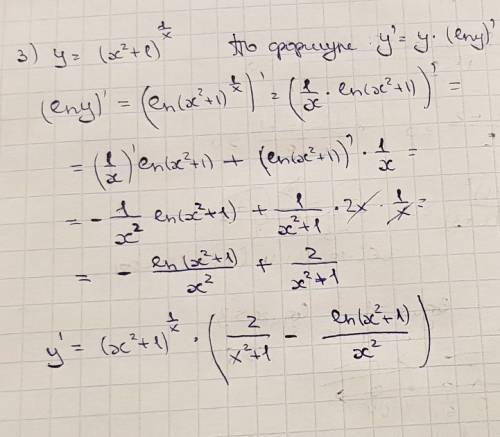 3) y = (x²+1)^(1/x) По формуле y' = y · (ln y)'
(ln y)' = (ln(x²+1)^(1/x))' = (1/x · ln(x²+1))' =
= (1/x)' ln(x²+1) + (ln(x²+1))' · 1/x =
= - 1/x² ln(x²+1) + 1/(x²+1) · 2x · 1/x =
= - ln(x²+1)/x² + 2/(x²+1)
y' = (x²+1)^(1/x) · (2/(x²+1) - ln(x²+1)/x²)